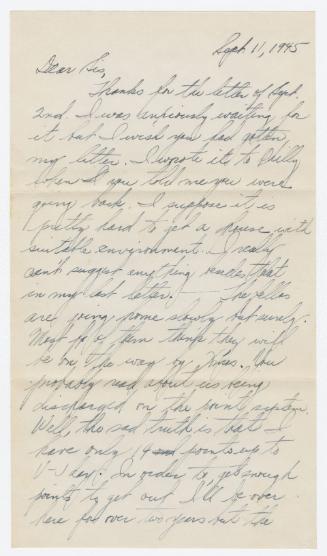 Sept 11, 1945
Dear Sis,
Thanks for the letter of Sept.
2nd. I was anxiously waiting for
it but I wish you had gotten
my letter. I wrote it to Philly
when you told me you were
going back. I suppose it is
pretty hard to get a house with
suitable environment. I really
can't suggest anything besides that
in my last letter. — The fellas
are going home slowly but surely.
Most of them think they will
be on the way by Xmas. You
probably read about us being
discharged on the point system.
Well, the sad truth is that I
have only 14 points up to
V-J day. In order to get enough
points to get out I'll be over
here for over two years but the